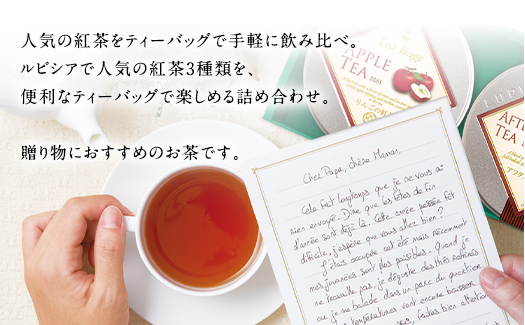 人気の紅茶をティーバッグで手軽に飲み比べ。
ルピシアで人気の紅茶3種類を、
便利なティーバッグで楽しめる詰め合わせ。
贈り物におすすめのお茶です。
Tea Bags
APPLE
TEA
LUPI
AFTE
TEA
Cher Papa, chère Maman.
Cela fait longtemps que je ne vous ai
rien envoyé. Dire que les fêtes de fin
d'année sont déjà là. Cette année passée fut
difficile, j'espère que vous allez bien?
J'étais occupée cet été mais récemment
mes journées sont plus paisibles. Quand je
ne travaille pas, je déguste des thés
ou je me balade dans un parc du quartier
températures vont encore baisser
faites bien attention